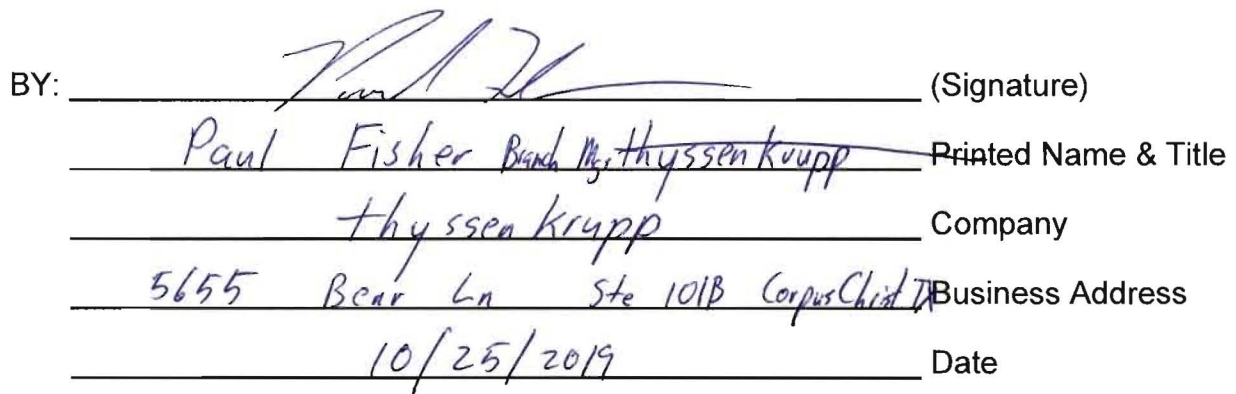 BY: Paul Fisher (Signature)
Paul Fisher Branch Mgr thyssenkrupp Printed Name & Title
thyssenkrupp Company
5655 Bear Ln Ste 101B Corpus Christi TX Business Address
10/25/2019 Date